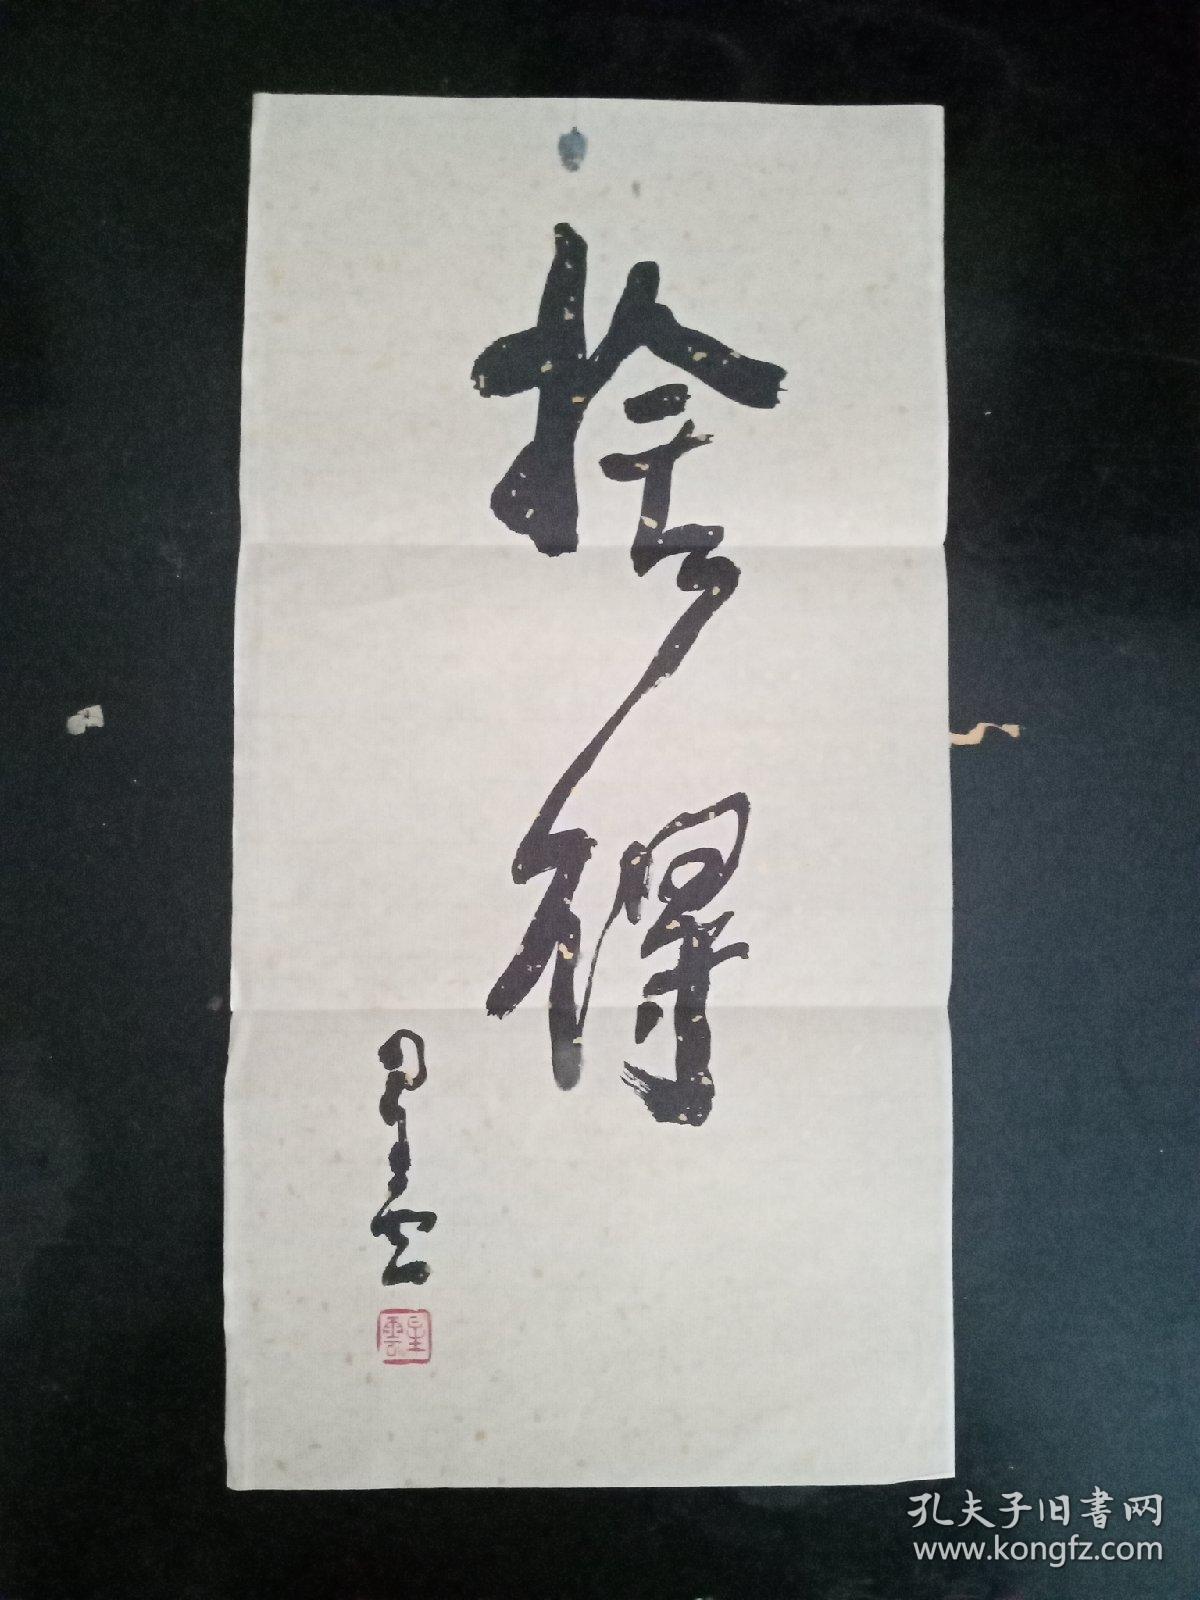 捨得
星雲
星雲
孔夫子旧書网
www.kongfz.com